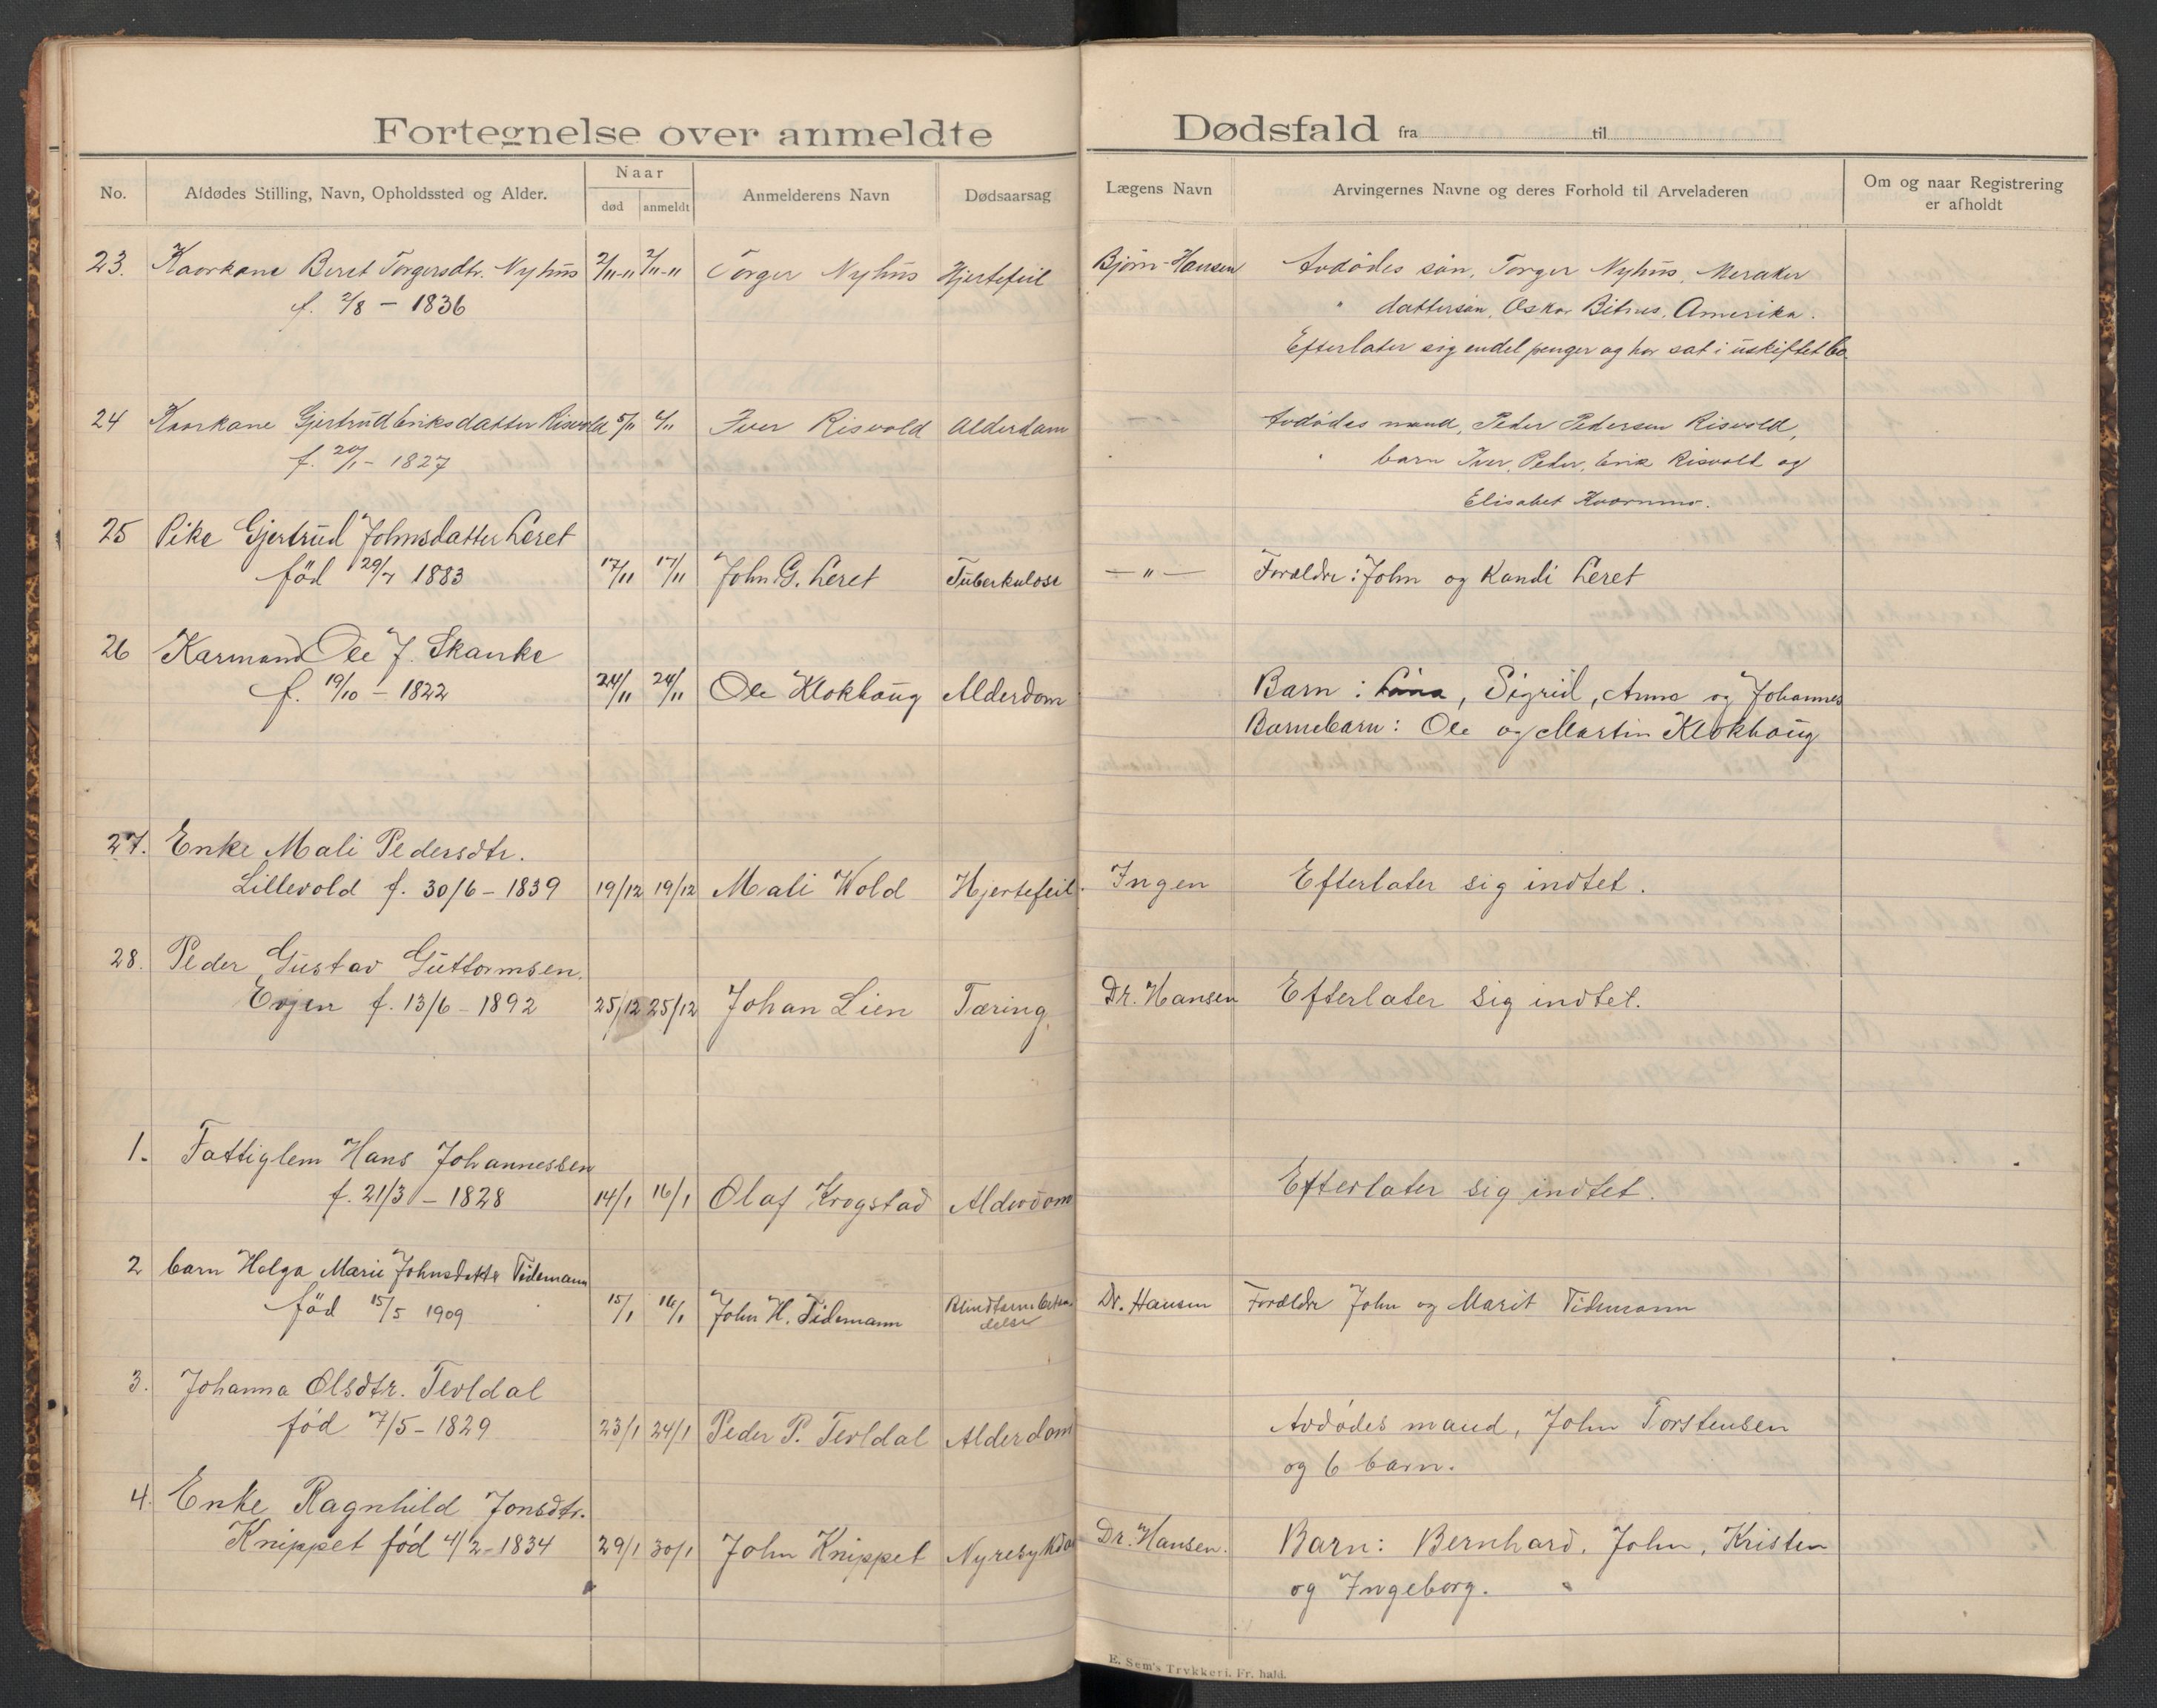 Fortegnelse over anmeldte Dødsfald fra til
No. Afdødes Stilling, Navn, Opholdssted og Alder. Naar død anmeldt Anmelderens Navn Dødsaarsag Lægens Navn Arvingernes Navne og deres Forhold til Arveladeren Om og naar Registrering er afholdt
23. Kaarkone Beret Torgersdtr. Nyhus 2/11-11 2/11-11 Torger Nyhus Hjertefeil Bjørn-Hansen Avdødes søn, Torger Nyhus, Meraker
f. 2/8 - 1836 " dattersøn, Oskar Amerika.
Efterlater sig endel penger og har sat i uskiftet bo
24 Kaarkone Gjertrud Eriksdatter Risvold 5/11 6/11 Iver Risvold Alderdom -"- Avdødes mand, Peder Pedersen Risvold,
f. 20/1 - 1827 " barn Iver, Peder, Erik Risvold og
Elisabet Kvernmo.
25 Pike Gjertrud Johnsdatter Leret
fød 29/7 1883 17/11 17/11 John G. Leret Tuberkulose -"- Forældre: John og Randi Leret
26 Karmand Ole J. Skanke
f. 19/10 - 1822 24/11 24/11 Ole Klokhaug Alderdom Barn: Lina, Sigrid, Anna og Johannes
Barnebarn: Ole og Martin Klokhaug
27. Enke Mali Pedersdtr.
Lillevold f. 30/6 - 1839 19/12 19/12 Mali Wold Hjertefeil. Ingen Efterlater sig indtet.
28. Peder Gustav Guttormsen.
Evjen f. 13/6 - 1892 25/12 25/12 Johan Lien Tæring. Dr. Hansen Efterlater sig indtet.
1. Fattiglem Hans Johannessen
f. 21/3 - 1828 14/1 16/1 Olaf Krogstad Alderdom Efterlater sig indtet.
2 barn Helga Marie Johnsdatter Tidemann
fød 15/5 1909 15/1 16/1 John H. Tidemann Blindtarmbetæn- Dr. Hansen Forældre John og Marit Tidemann
delse
3. Johanna Olsdtr. Tevldal
fød 7/5 - 1829 23/1 24/1 Peder P. Tevldal Alderdom Avdødes mand, John Torstensen
og 6 barn.
4. Enke Ragnhild Jonsdtr.
Knippet fød 4/2 - 1834 29/1 30/1 John Knippet Nyresykdo Dr. Hansen. Barn: Bernhard, John, Kristen
og Ingeborg.
E. Sem's Trykkeri. Fr. hald.